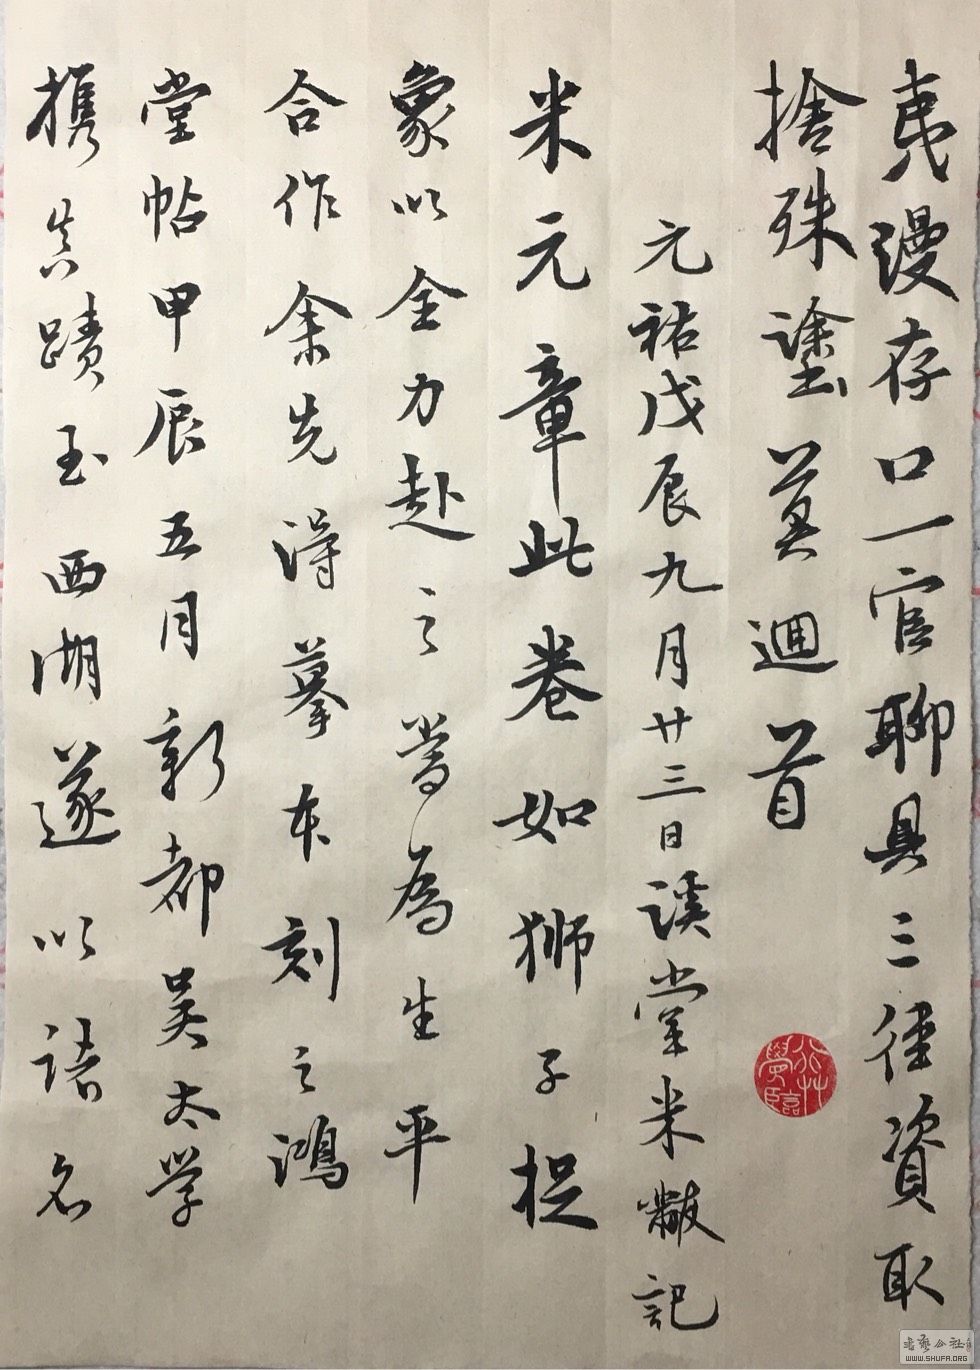 夷漫存口一官聊具三徑資取
捨殊塗莫迴首
元祐戊辰九月廿三日溪堂米黻記
米元章此卷如獅子捉
象以全力赴之當為生平
合作余先得摹本刻之鴻
堂帖甲辰五月新都吳太学
攜真蹟至西湖遂以諸名
WWW.SHUFA.ORG